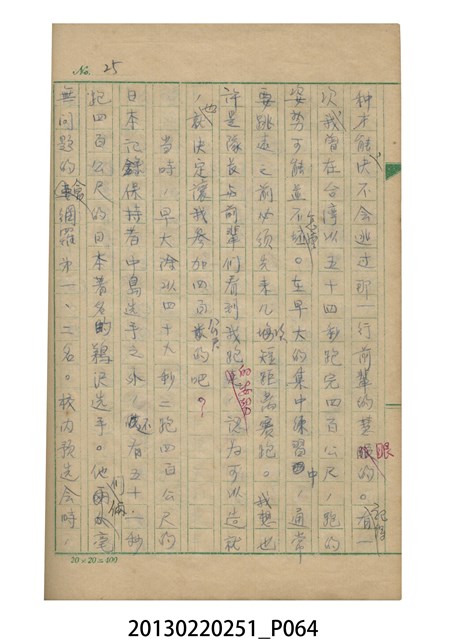 No. 25
種才能決不会逃过那一行前輩的慧眼的。有一
次我曾在台湾以五十四秒跑完四百公尺,跑的
姿勢可能並不壞。在早大的集中練習中,通常
要跳遠之前必須先来几次短距離賽跑。我想也
許是隊長与前輩們看到我跑的姿勢認为可以造就
,也就決定讓我參加四百公尺的吧?
当時,早大除以四十九秒二跑四百公尺的
日本記錄保持者中島选手之外,还有五十一秒
跑四百公尺的日本著名的鵜沢选手。他們倆毫
無問題的会網羅第一、二名。校內預选会時,
20×20=400
20130220251_P064